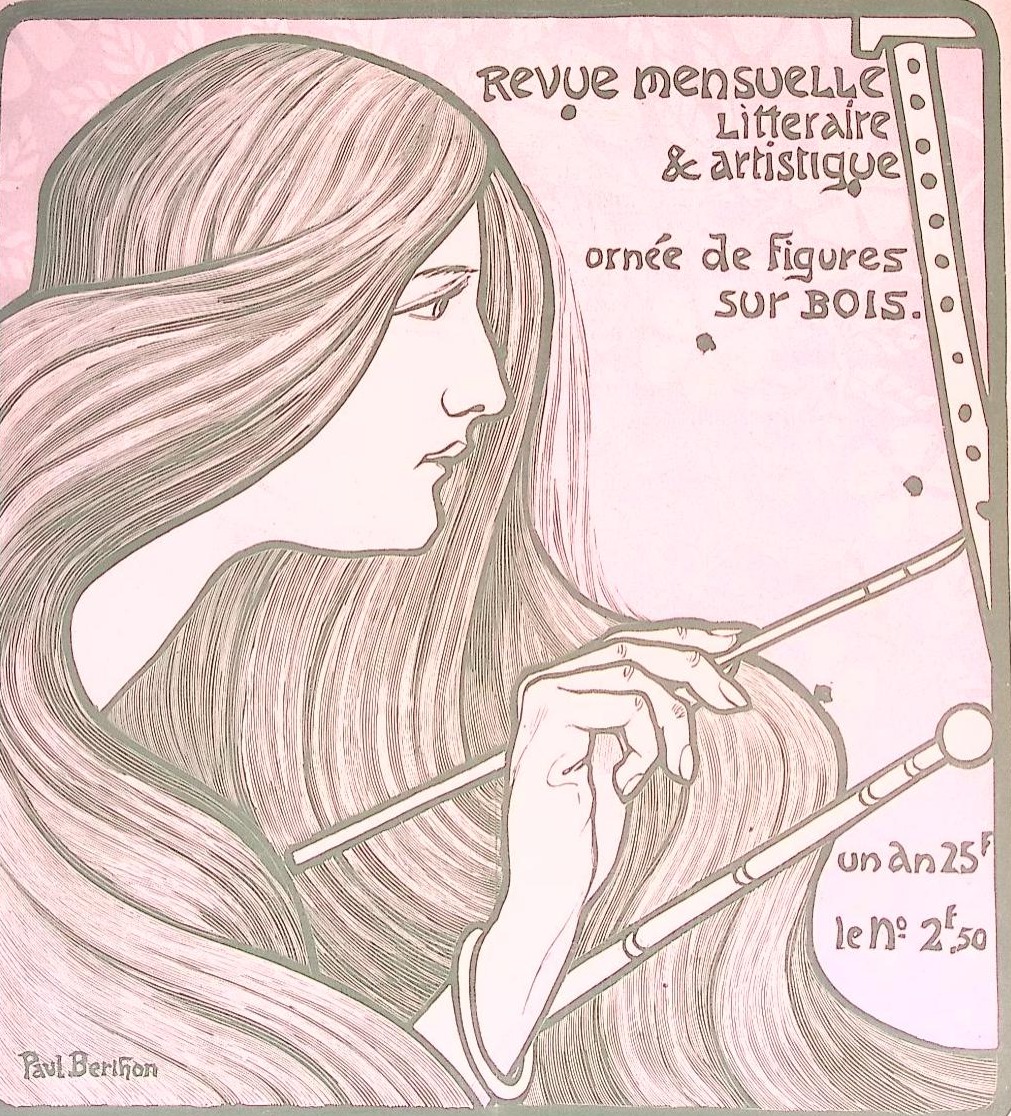 Revue mensuelle
Litteraire
& artistique
ornée de figures
sur BOIS.
un an 25F
le No 2F.50
Paul.Berthon